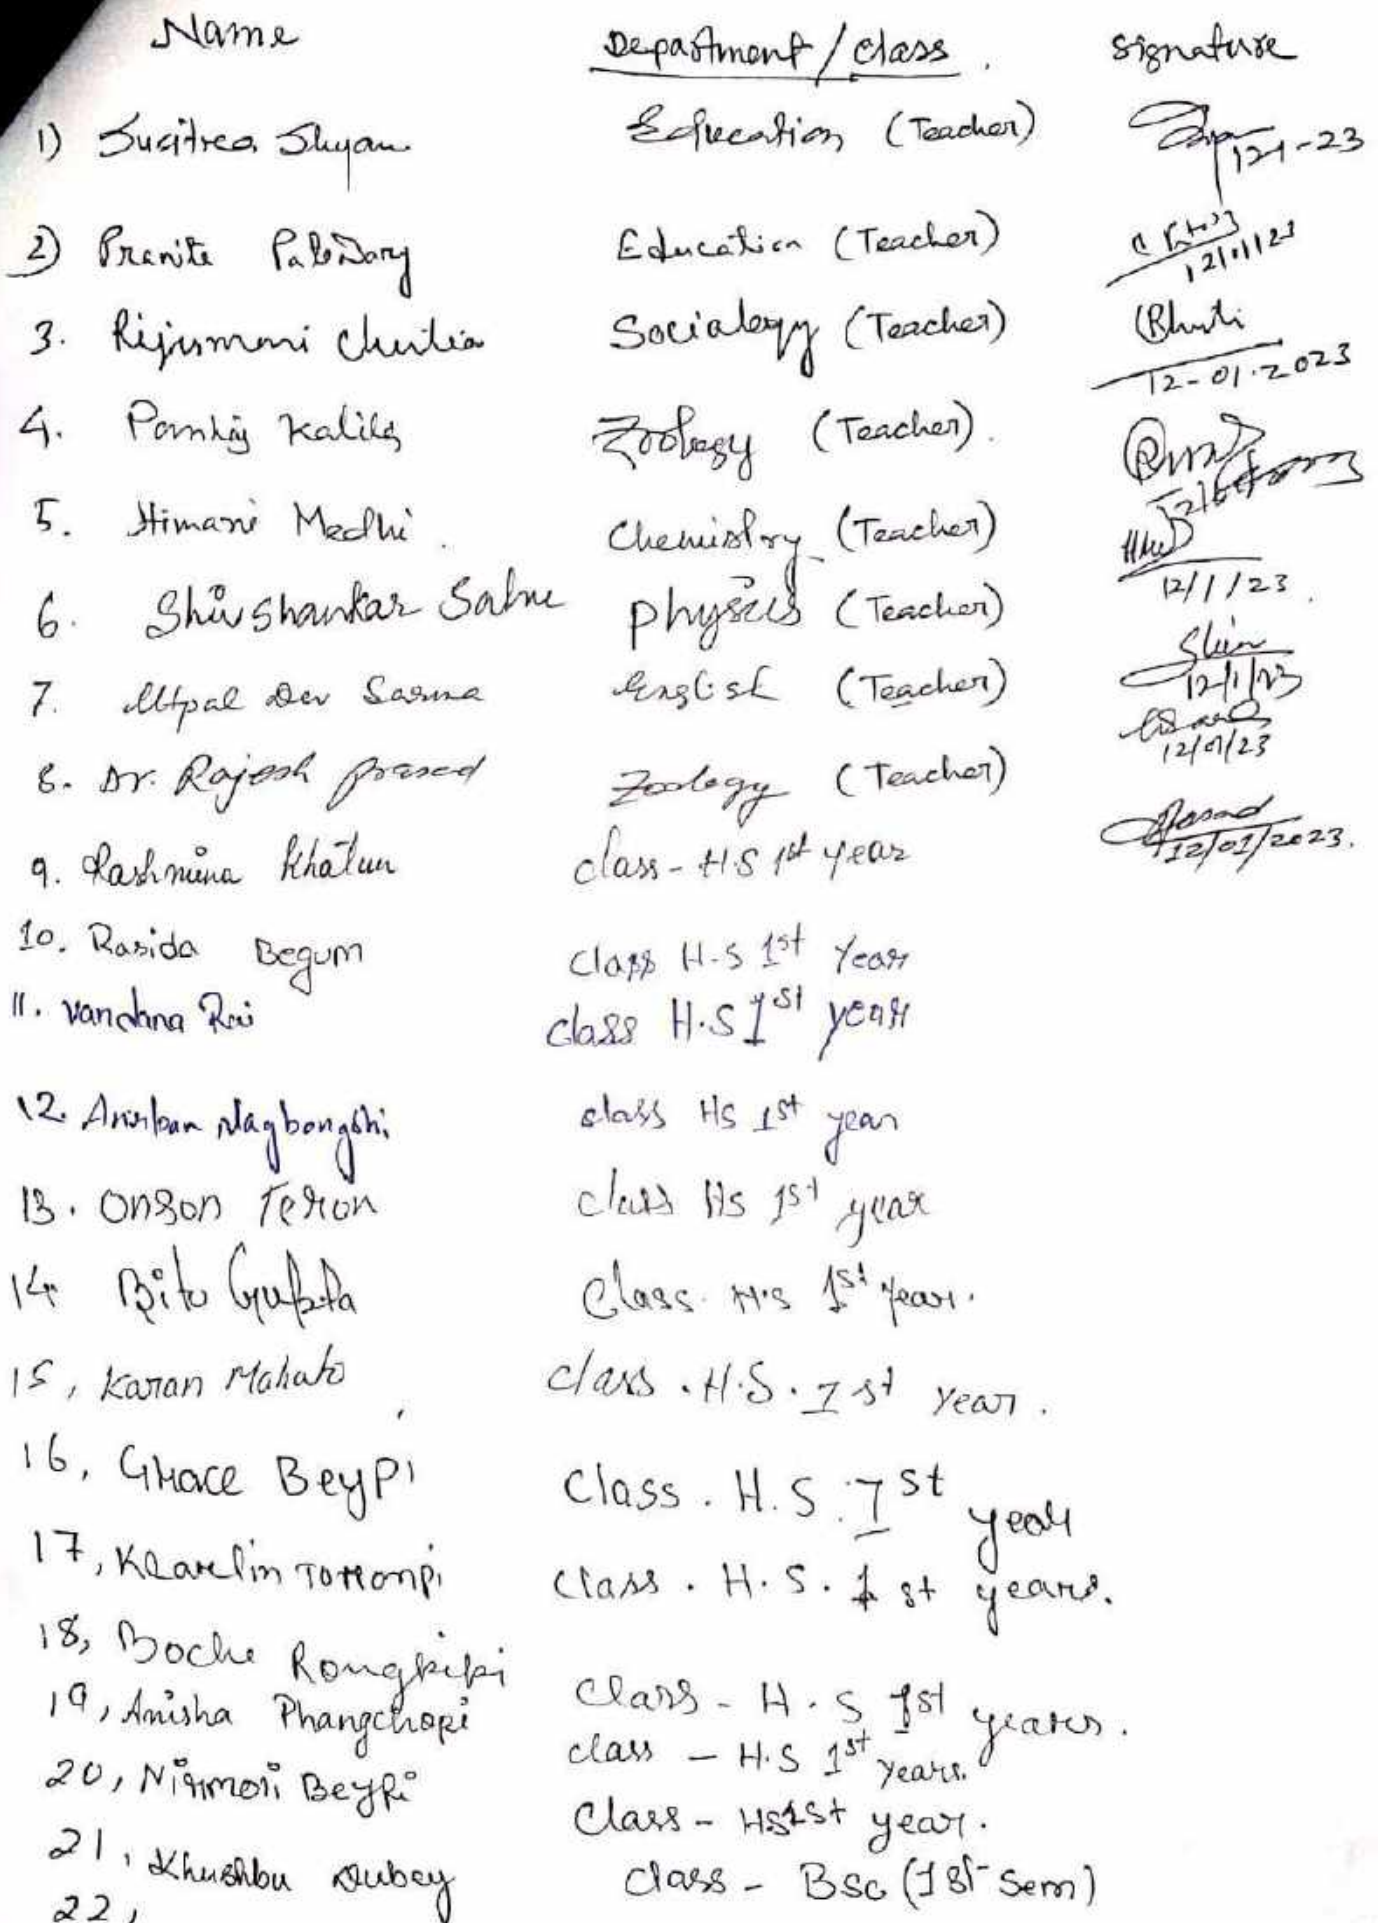 Name Department/class. signature
1) Sucitrea Shyam Education (Teacher) 12-1-23
2) Pranita Education (Teacher) 12/01/23
3. Rijumoni Chutia Sociology (Teacher) 12-01-2023
4. Pankaj Kalita Zoology (Teacher).
5. Himani Medhi. Chemistry (Teacher) 12/1/23.
6. Shivshankar Physics (Teacher)
7. Utpal Dev Sarma English (Teacher) 12/1/23
8. Dr. Rajesh Prasad Zoology (Teacher) 12/01/23
9. Rashmina Khatun class - H.S 1st year 12/01/2023.
10. Rasida Begum Class H.S 1st Year
11. Vandana Rai class H.S 1st year
12. Anirban Nagbongshi class HS 1st year
13. Onson Teron class Hs 1st year
14. Bitu Gupta Class. H.S 1st year.
15, Karan Mahato class. H.S. 1st year.
16, Grace Beypi Class. H.S. 1st year
17, Klarlin Torronpi class. H.S. 1st years.
18, Boche Rongpipi Class - H.S 1st years.
19, Anisha Phangchopi class - H.S 1st years.
20, Nirmoti Beypi Class - HS 1st year.
21, Khushbu Dubey class - BSc (1st Sem)
22,